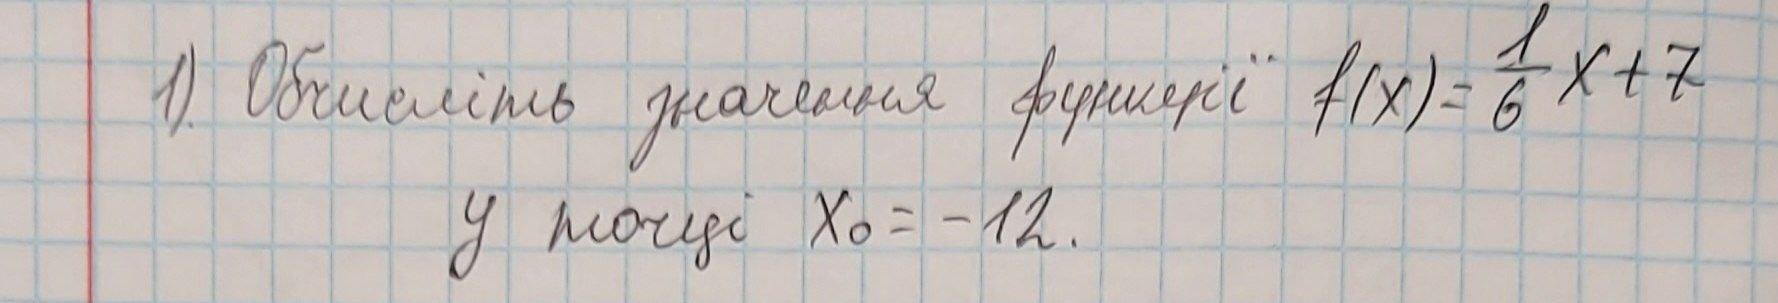 1). Обчисліть значення функції f(x) = 1/6 x + 7
у точці x₀ = -12.